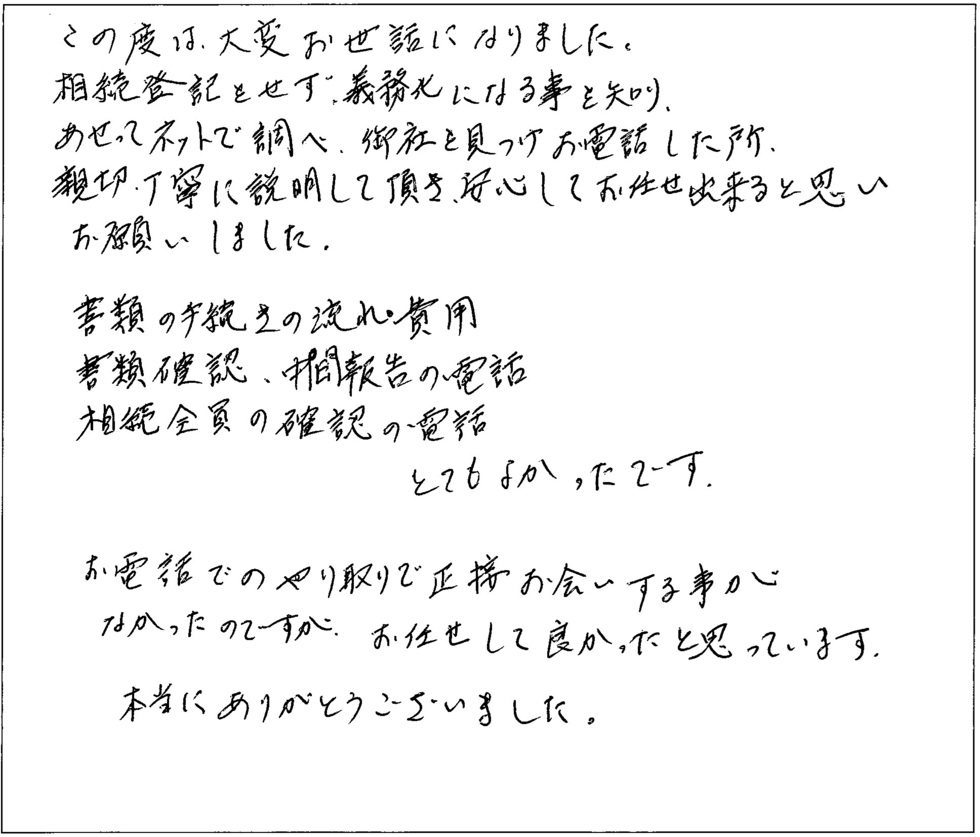 この度は、大変お世話になりました。
相続登記をせず、義務化になる事を知り、
あせってネットで調べ、御社を見つけお電話した所、
親切・丁寧に説明して頂き、安心してお任せ出来ると思い
お願いしました。
書類の手続きの流れ・費用
書類確認、中間報告の電話
相続全員の確認の電話
とてもよかったです。
お電話でのやり取りで正接お会いする事が
なかったのですが、お任せして良かったと思っています。
本当にありがとうございました。